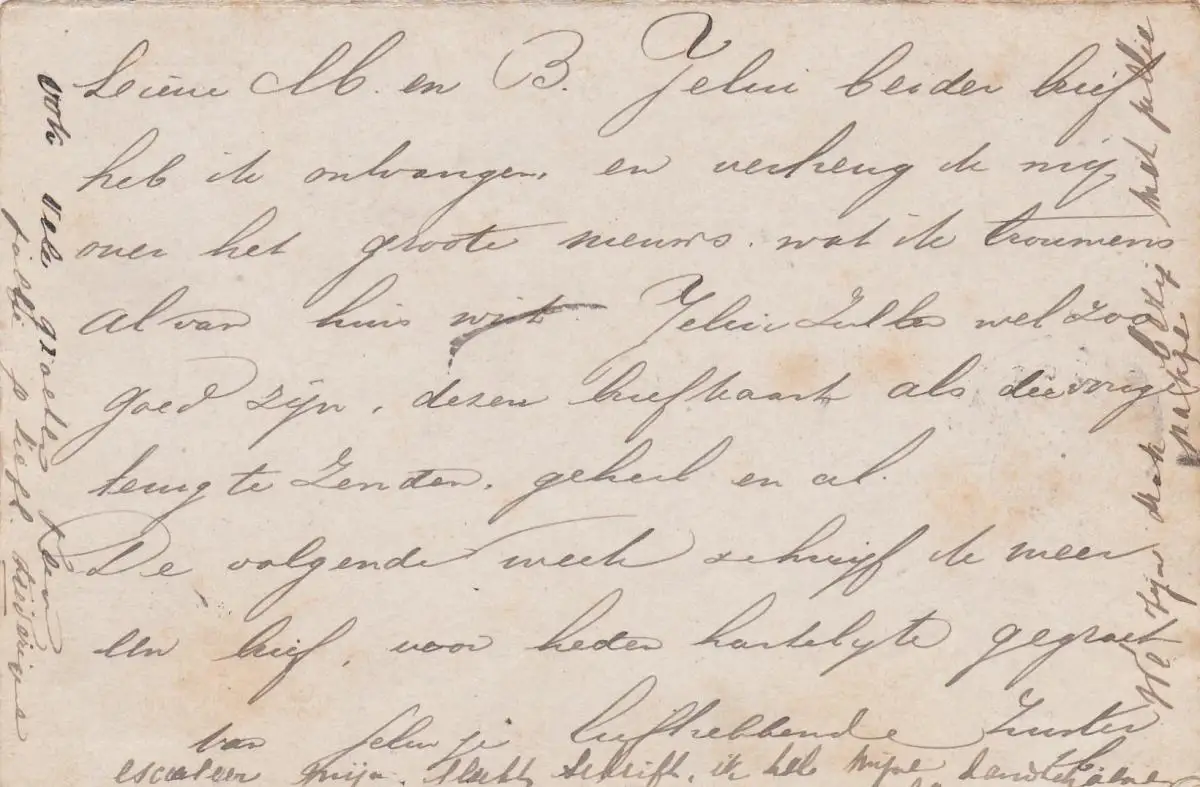 Lieve M. en B. Jelui beider brief
heb ik ontvangen, en verheug ik mij
over het groote nieuws. wat ik trouwens
al van huis wist. Jelui Zult wel zoo
goed zijn, dezen briefkaart als die vorige
terug te Zenden. geheel en al.
De volgende week schrijf ik weer
een brief, voor heden hartelijke gegroet
van jelui je liefhebbende Zuster
mijn slecht schrift, ik heb mijne
ook vele groeten
jullie je liefh.
We zijn ook blij met jullie
pakje